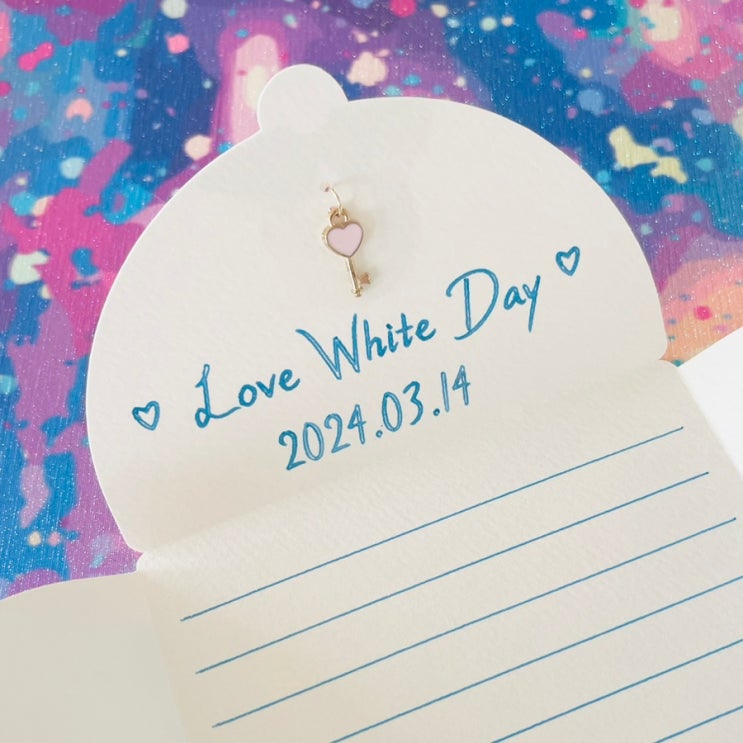 ♡ Love White Day ♡
2024.03.14